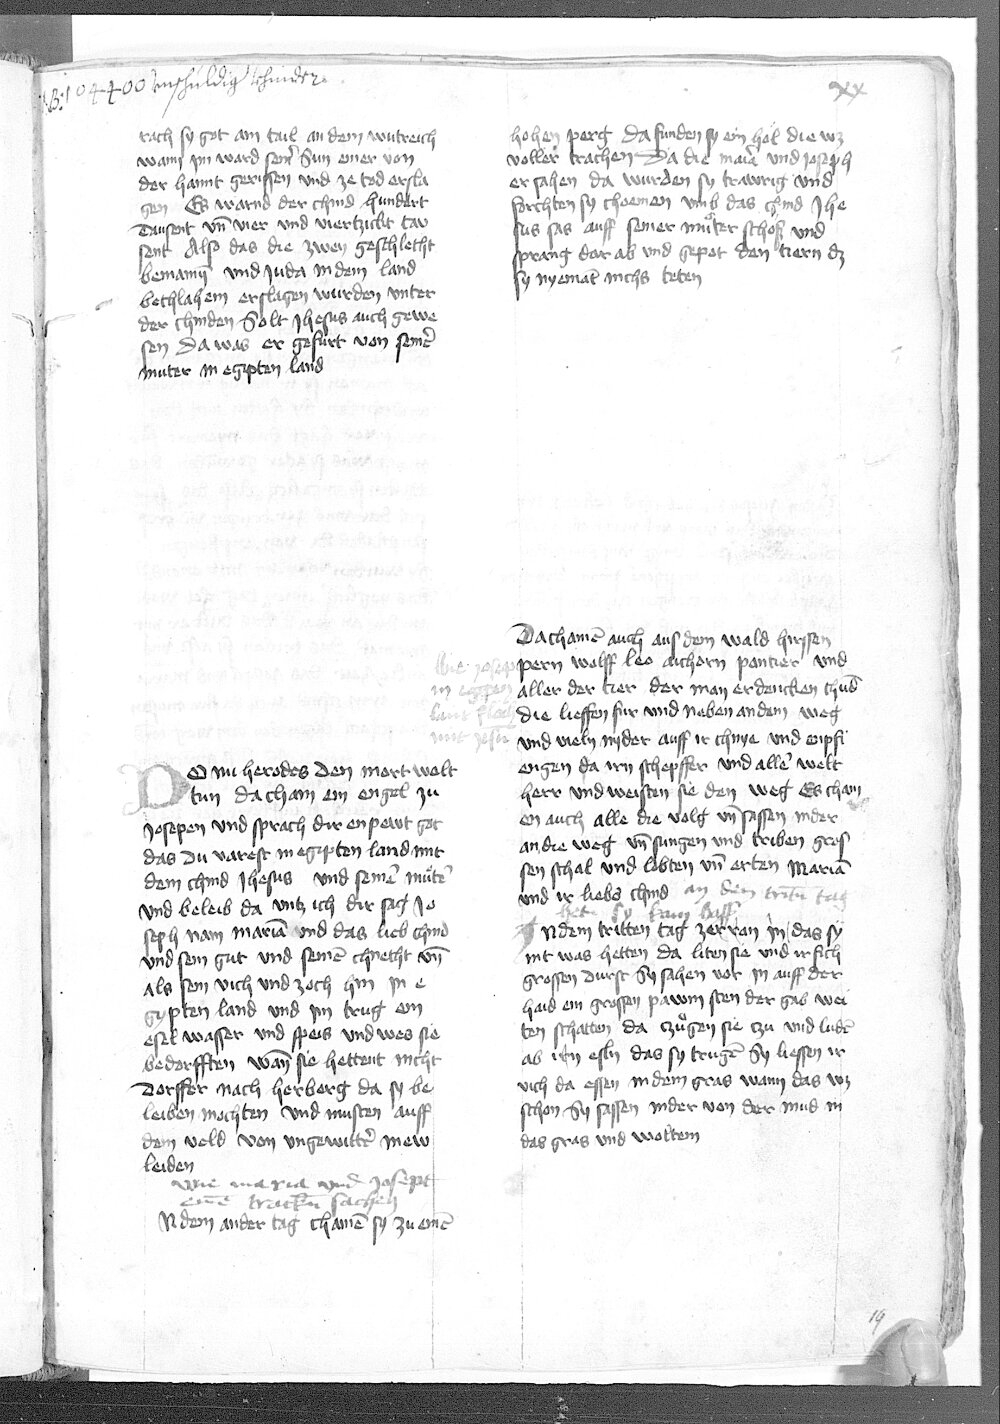 NB: 104400 unschuldig khinder.
xx
rach sy got am tail an dem wutreich
wann im ward seinē Sun einer von
der hannt gerissen und ze tod ersla
gen Es warnd der chind hundert
Tausent vn̄ vier und viertzickt tau
sent Also das die zwen geschlecht
beniamin und Juda in dem land
bethlahem erslagen wurden unter
der chinden Solt Jhesus auch gewe
sen Da was er gefurt von seinē
muter in egipten land
DO nu herodes den mort wolt
tun da cham ein engel zu
Josepen und sprach dir enpewt got
das Du varest in egipten land mit
dem chind Jhesus und seinē muͤtē
und beleib da untz ich dir sag Jo
seph nam mariā und das lieb chind
und sein gut und seinē chnecht vn̄
als sein vich und zoch hin in e
gypten land und im trug ein
esel wasser und speis und wes sie
bedorfften wan̄ sie hettent nicht
Dorffer nach herberg da sy be
leiben mochten und musten auff
dem veld von ungewittē
leiden
wie maria und Josept
einē tracku̅ sachen
Ndem ander tag chamē sy zu einē
hohen perg Da funden sy ein hol die wz
voller trachen Da die maīa und Joseph
er sahen da wurden sy trawrig und
forchten sy choemen umb das chind Jhe
sus sas auff seiner muͤter schos und
sprang dar ab und gepot den tiern dz
sy nyemāt nichs teten
Wie Josep
in egypten
lant
mit Jesu
Da chamē auch aus dem wald hirssen
pern wolff leo aichorn pantier und
aller der tier der man erdencken chūd
die lieffen fur und neben an dem weg
und vieln nyder auff ir chnye und enpfi
engen da irn schepffer und allē welt
herr und weisten sie den weg Es cham
en auch alle die volg vn̄ sassen nider
an die weg vn̄ sungen und triben gros
sen schal und lobten vn̄ erten Mariā
und ir liebs chind an dem tritn̄ tag
hetn̄ sy kain
Ndem tritten tag zerran in das sy
mit was hetten da liten sie und ir fich
grossen durst Sy sahen vor in auff der
haid ein grossen pawm sten der gab wei
ten schatten da czugen sie czu und ludē
ab irn esln das sy trugē Sy liessen ir
vich da essen in dem gras wann das wz
schon Sy sassen nider von der mud in
das gras und woltem
19